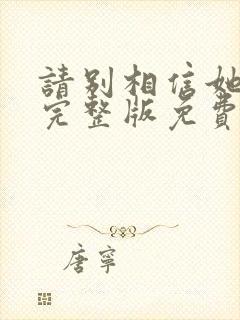 請別相信她
完整版免費
唐寧